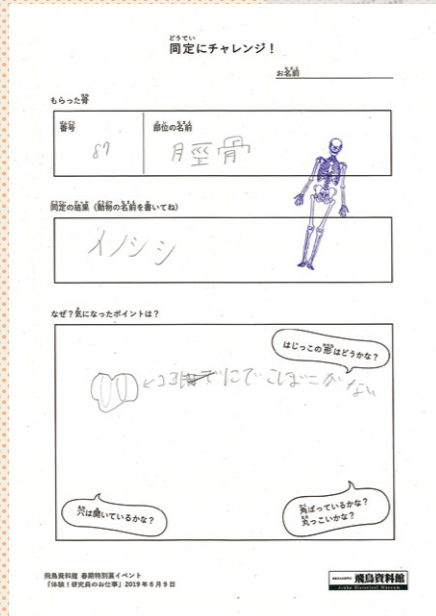 どうてい
同定にチャレンジ!
お名前
もらった骨
番号
部位の名前
87
脛骨
同定の結果(動物の名前を書いてね)
イノシシ
なぜ?気になったポイントは?
はじっこの形はどうかな?
←ココ
にでこぼこがない
穴は開いているかな?
角ばっているかな?
丸っこいかな?
飛鳥資料館 春期特別展イベント
「体験!研究員のお仕事」2019年6月9日
飛鳥資料館
Asuka Historical Museum